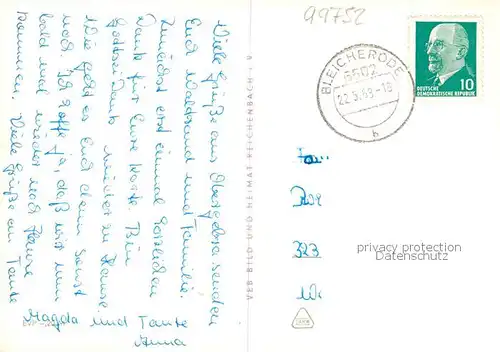 99752
Viele Grüße aus Obergebra senden
Euch Waltraud und Familie.
Zunächst erst einmal herzlichen
Dank für Eure Karte. Bin
Gottseidank wieder zu Hause.
Wie geht es Euch denn sonst
noch. Ich hoffe ja, daß wir nun
bald mal wieder nach Hause
kommen. Viele Grüße an Tante
Magda und Tante
Anna
VEB BILD UND HEIMAT REICHENBACH
BLEICHERODE
22.5.63-18
b
10
DEUTSCHE
DEMOKRATISCHE REPUBLIK
Fam.
323
privacy protection
Datenschutz